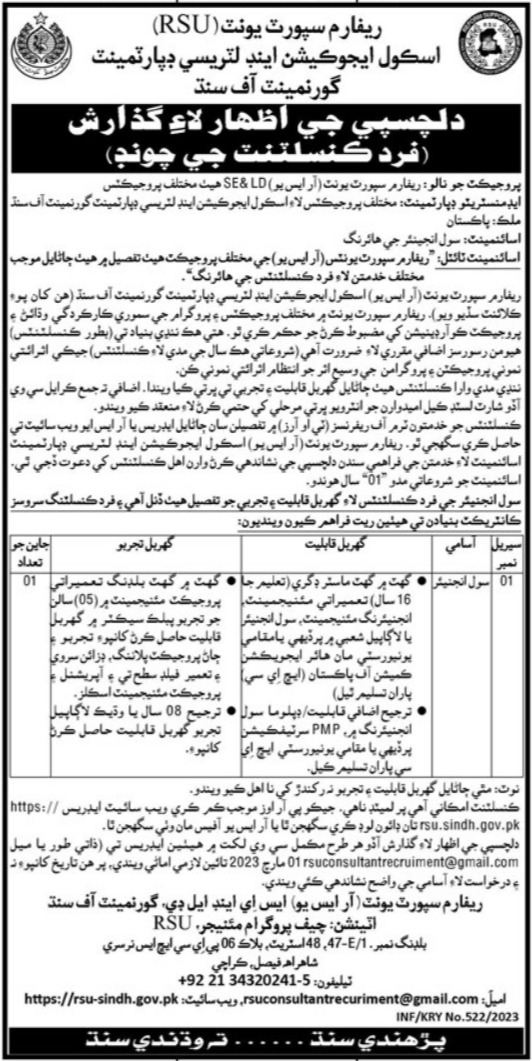 ريفارم سپورٽ يونٽ (RSU)
اسڪول ايجوڪيشن اينڊ لٽريسي ڊپارٽمينٽ
گورنمينٽ آف سنڌ
دلچسپي جي اظهار لاءِ گذارش
(فرد ڪنسلٽنٽ جي چونڊ)
پروجيڪٽ جو نالو: ريفارم سپورٽ يونٽ (آر ايس يو) SE& LD هيٺ مختلف پروجيڪٽس
ايڊمنسٽريٽو ڊپارٽمينٽ: مختلف پروجيڪٽس لاءِ اسڪول ايجوڪيشن اينڊ لٽريسي ڊپارٽمينٽ گورنمينٽ آف سنڌ
ملڪ: پاڪستان
اسائنمينٽ: سول انجنيئر جي هائرنگ
اسائنمينٽ ٽائٽل: ”ريفارم سپورٽ يونٽس (آر ايس يو) جي مختلف پروجيڪٽ هيٺ تفصيل ۾ هيٺ ڄاڻايل موجب
مختلف خدمتن لاءِ فرد ڪنسلٽنٽس جي هائرنگ“.
ريفارم سپورٽ يونٽ (آر ايس يو) اسڪول ايجوڪيشن اينڊ لٽريسي ڊپارٽمينٽ گورنمينٽ آف سنڌ (هن کان پوءِ
ڪلائنٽ سڏيو ويو). ريفارم سپورٽ يونٽ ۾ مختلف پروجيڪٽس ۽ پروگرام جي سموري ڪارڪردگي وڌائڻ ۽
پروجيڪٽ ڪوآرڊينيشن کي مضبوط ڪرڻ جو حڪم ڪري ٿو. هتي هڪ ننڍي بنياد تي (بطور ڪنسلٽنٽس)
هيومن رسورسز اضافي مقرري لاءِ ضرورت آهي (شروعاتي هڪ سال جي مدي لاءِ ڪنسلٽنٽس) جيڪي اثرائتي
نموني پروجيڪٽن ۽ پروگرامن جي وسيع اثر جو انتظام اثرائتي نموني ڪن.
ننڍي مدي وارا ڪنسلٽنٽس هيٺ ڄاڻايل گهربل قابليت ۽ تجربي تي ڀرتي ڪيا ويندا. اضافي تہ جمع ڪرايل سي وي
آڌو شارٽ لسٽڊ ڪيل اميدوارن جو انٽرويو ڀرتي مرحلي کي حتمي ڪرڻ لاءِ منعقد ڪيو ويندو.
ڪنسلٽنٽس جو خدمتون ٽرم آف ريفرنسز (ٽي او آرز) ۾ تفصيلن سان ڄاڻايل ايڊريس يا آر ايس يو ويب سائيٽ تي
حاصل ڪري سگهجي ٿو. ريفارم سپورٽ يونٽ (آر ايس يو) اسڪول ايجوڪيشن اينڊ لٽريسي ڊپارٽمينٽ
اسائنمينٽ لاءِ خدمتن جي فراهمي سندن دلچسپي جي نشاندهي ڪرڻ وارن اهل ڪنسلٽنٽس کي دعوت ڏجي ٿي.
اسائنمينٽ جو شروعاتي مدو ”01“ سال هوندو.
سول انجنيئر جي فرد ڪنسلٽنٽس لاءِ گهربل قابليت ۽ تجربي جو تفصيل هيٺ ڏنل آهي ۽ فرد ڪنسلٽنگ سروسز
ڪانٽريڪٽ بنيادن تي هيٺين ريت فراهم ڪيون وينديون:
سيريل نمبر
آسامي
گهربل قابليت
گهربل تجربو
جاين جو تعداد
01
سول انجنيئر
● گهٽ ۾ گهٽ ماسٽر ڊگري (تعليم جا
16 سال) تعميراتي مئنيجمينٽ،
انجنيئرنگ مئنيجمينٽ، سول انجنيئر
يا لاڳاپيل شعبي ۾ پرڏيهي يا مقامي
يونيورسٽي مان هائر ايجوڪيشن
ڪميشن آف پاڪستان (ايڇ اي سي)
پاران تسليم ٿيل)
● ترجيح اضافي قابليت/ ڊپلوما سول
انجنيئرنگ ۾، PMP سرٽيفڪيشن
پرڏيهي يا مقامي يونيورسٽي ايڇ اي
سي پاران تسليم ڪيل.
● گهٽ ۾ گهٽ بلڊنگ تعميراتي
پروجيڪٽ مئنيجمينٽ ۾ (05) سالن
جو تجربو پبلڪ سيڪٽر ۾ گهربل
قابليت حاصل ڪرڻ کانپوءِ تجربو ۽
ڄاڻ پروجيڪٽ پلاننگ، ڊزائن سروي
۽ تعمير فيلڊ سطح تي ۽ آپريشنل ۽
پروجيڪٽ مئنيجمينٽ اسڪلز.
● ترجيح 08 سال يا وڌيڪ لاڳاپيل
تجربو گهربل قابليت حاصل ڪرڻ
کانپوءِ.
01
نوٽ: مٿي ڄاڻايل گهربل قابليت ۽ تجربو نہ رکندڙ کي نا اهل ڪيو ويندو.
ڪنسلٽنٽ امڪاني آهي پر لميٽڊ ناهي. جيڪو پي آر اوز موجب ڪم ڪري ويب سائيٽ ايڊريس https://
rsu.sindh.gov.pk تان ڊائون لوڊ ڪري سگهجن ٿا يا آر ايس يو آفيس مان وٺي سگهجن ٿا.
دلچسپي جي اظهار لاءِ گذارش آڌو هر طرح مڪمل سي وي لکت ۾ هيٺين ايڊريس تي (ذاتي طور يا ميل
rsuconsultantrecruiment@gmail.com) 01 مارچ 2023 تائين لازمي اماڻي ويندي، پر هن تاريخ کانپوءِ نہ
۽ درخواست لاءِ آسامي جي واضح نشاندهي ڪئي ويندي.
ريفارم سپورٽ يونٽ (آر ايس يو) ايس اي اينڊ ايل ڊي، گورنمينٽ آف سنڌ
اٽينشن: چيف پروگرام مئنيجر، RSU
بلڊنگ نمبر. 47-E/1، 48 اسٽريٽ، بلاڪ 06 پي اي سي ايڇ ايس نرسري
شاهراهه فيصل، ڪراچي
ٽيليفون: +92 21 34320241-5
اميل: rsuconsultantrecuriment@gmail.com، ويب سائيٽ: https://rsu-sindh.gov.pk
INF/KRY No.522/2023
پڙهندي سنڌ ...... تہ وڌندي سنڌ